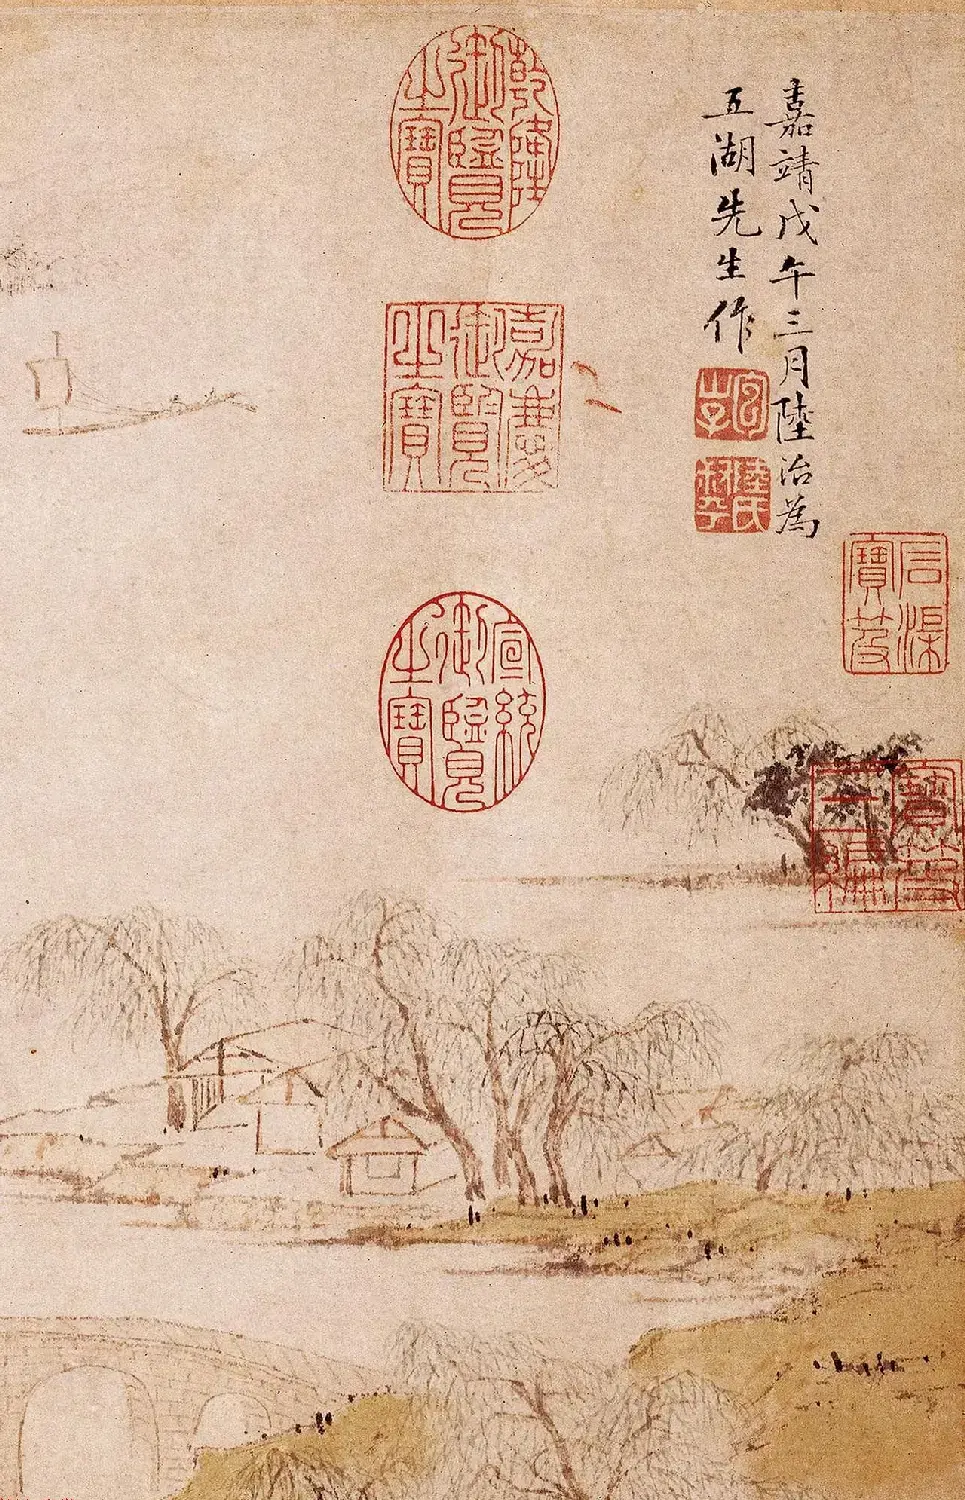 嘉靖戊午三月陸治為
五湖先生作
包山子
陸氏叔平
石渠寶笈
寶笈三編
乾隆御覽之寶
嘉慶御覽之寶
宣統御覽之寶